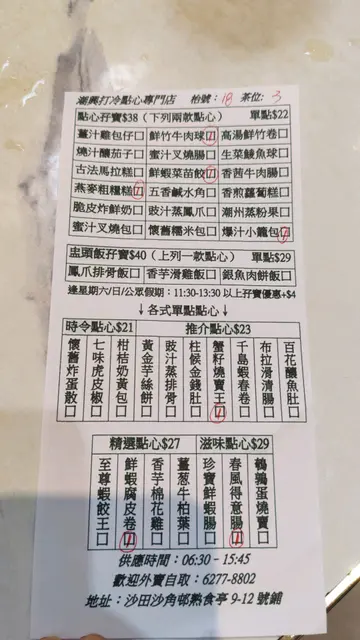 潮興打冷點心專門店 枱號:18 茶位:3
點心孖寶$38(下列兩款點心) 單點$22
薑汁雞包仔口 鮮竹牛肉球口 高湯鮮竹卷口
燒汁釀茄子口 蜜汁叉燒腸口 生菜鯪魚球口
古法馬拉糕口 鮮蝦菜苗餃口 香茜牛肉腸口
燕麥粗糧糕口 五香鹹水角口 香煎蘿蔔糕口
脆皮炸鮮奶口 豉汁蒸鳳爪口 潮州蒸粉果口
蜜汁叉燒包口 懷舊糯米包口 爆汁小籠包口
盅頭飯孖寶$40(上列一款點心) 單點$29
鳳爪排骨飯口 香芋滑雞飯口 銀魚肉餅飯口
逢星期六/日/公眾假期:11:30-13:30 以上孖寶優惠+$4
↓各式單點點心↓
時令點心$21 推介點心$23
懷舊炸蛋散口
七味虎皮椒口
柑桔奶黃包口
黃金芋絲餅口
豉汁蒸排骨口
柱候金錢肚口
蟹籽燒賣王口
千島蝦春卷口
布拉滑清腸口
百花釀魚肚口
精選點心$27 滋味點心$29
至尊蝦餃王口
鮮蝦腐皮卷口
香芋棉花雞口
薑蔥牛柏葉口
珍寶鮮蝦腸口
春風得意腸口
鵪鶉蛋燒賣口
供應時間:06:30 - 15:45
歡迎外賣自取:6277-8802
地址:沙田沙角邨熟食亭 9-12 號鋪